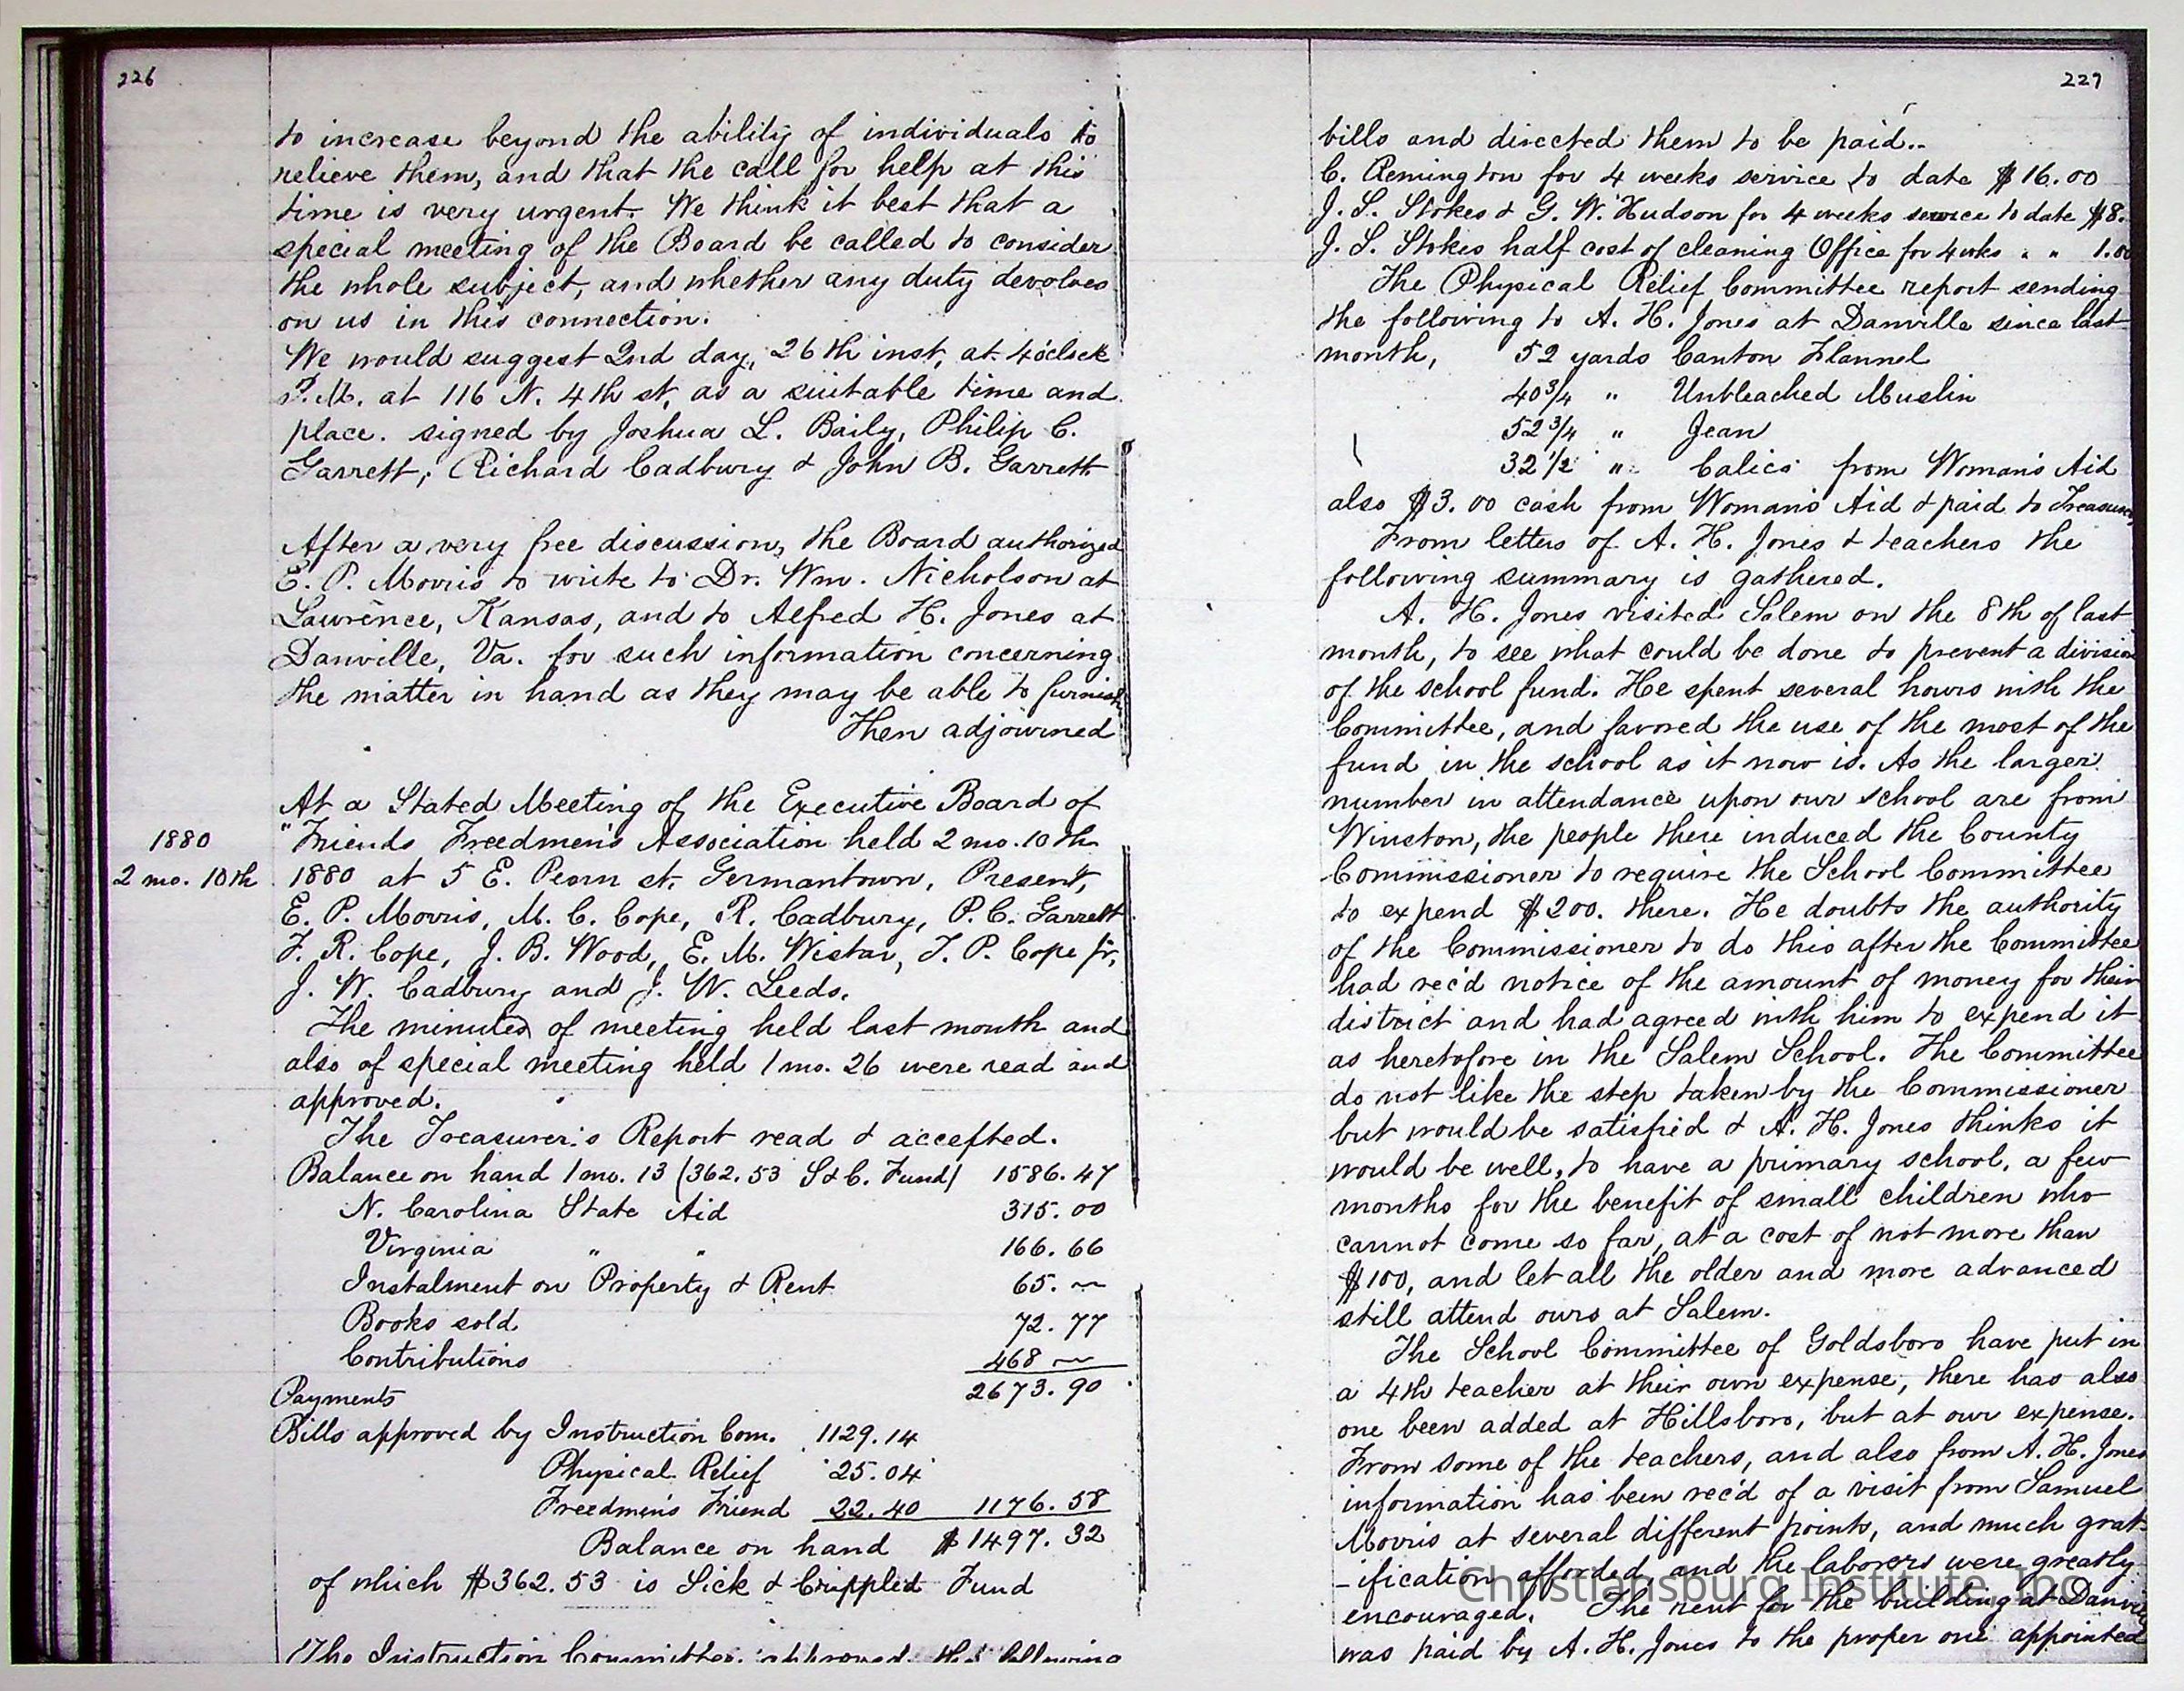 226
to increase beyond the ability of individuals to
relieve them, and that the call for help at this
time is very urgent. We think it best that a
special meeting of the Board be called to consider
the whole subject, and whether any duty devolves
on us in this connection.
We would suggest 2nd day, 26th inst, at 4 o'clock
P.M. at 116 N. 4th st, as a suitable time and
place. signed by Joshua L. Baily, Philip C.
Garrett, Richard Cadbury & John B. Garrett
After a very free discussion, the Board authorized
E. P. Morris to write to Dr. Wm. Nicholson at
Lawrence, Kansas, and to Alfred H. Jones at
Danville, Va. for such information concerning
the matter in hand as they may be able to furnish
Then adjourned
At a Stated Meeting of the Executive Board of
1880 "Friends Freedmen's Association held 2 mo. 10th
2 mo. 10th 1880 at 5 E. Penn st. Germantown, Present,
E. P. Morris, M. C. Cope, R. Cadbury, P. C. Garrett
F. R. Cope, J. B. Wood, E. M. Wistar, T. P. Cope Jr,
J. W. Cadbury and J. W. Leeds.
The minutes of meeting held last month and
also of special meeting held 1 mo. 26 were read and
approved.
The Treasurer's Report read & accepted.
Balance on hand 1 mo. 13 (362.53 S & C. Fund) 1586.47
N. Carolina State Aid 315.00
Virginia " " 166.66
Instalment on Property & Rent 65. ~
Books sold 72.77
Contributions 468 ~
2673.90
Payments
Bills approved by Instruction Com. 1129.14
Physical Relief 25.04
Freedmen's Friend 22.40 1176.58
Balance on hand $1497.32
of which $362.53 is Sick & Crippled Fund
The Instruction Committee approved the following
227
bills and directed them to be paid..
C. Remington for 4 weeks service to date $16.00
J. S. Stokes & G. W. Hudson for 4 weeks service to date $8.
J. S. Stokes half cost of cleaning Office for 4 wks " " 1.00
The Physical Relief Committee report sending
the following to A. H. Jones at Danville since last
month, 52 yards Canton Flannel
40 3/4 " Unbleached Muslin
52 3/4 " Jean
32 1/2 " Calico from Woman's Aid
also $3.00 cash from Woman's Aid & paid to Treasurer
From letters of A. H. Jones & teachers the
following summary is gathered.
A. H. Jones visited Salem on the 8th of last
month, to see what could be done to prevent a division
of the school fund. He spent several hours with the
Committee, and favored the use of the most of the
fund in the school as it now is. As the larger
number in attendance upon our school are from
Winston, the people there induced the County
Commissioner to require the School Committee
to expend $200. there. He doubts the authority
of the Commissioner to do this after the Committee
had rec'd notice of the amount of money for their
district and had agreed with him to expend it
as heretofore in the Salem School. The Committee
do not like the step taken by the Commissioner
but would be satisfied & A. H. Jones thinks it
would be well, to have a primary school, a few
months for the benefit of small children who
cannot come so far, at a cost of not more than
$100, and let all the older and more advanced
still attend ours at Salem.
The School Committee of Goldsboro have put in
a 4th teacher at their own expense, there has also
one been added at Hillsboro, but at our expense.
From some of the teachers, and also from A. H. Jones
information has been rec'd of a visit from Samuel
Morris at several different points, and much grat-
-ification afforded, and the laborers were greatly
encouraged. The rent for the building at Danville
was paid by A. H. Jones to the proper one appointed
Christiansburg Institute, Inc.